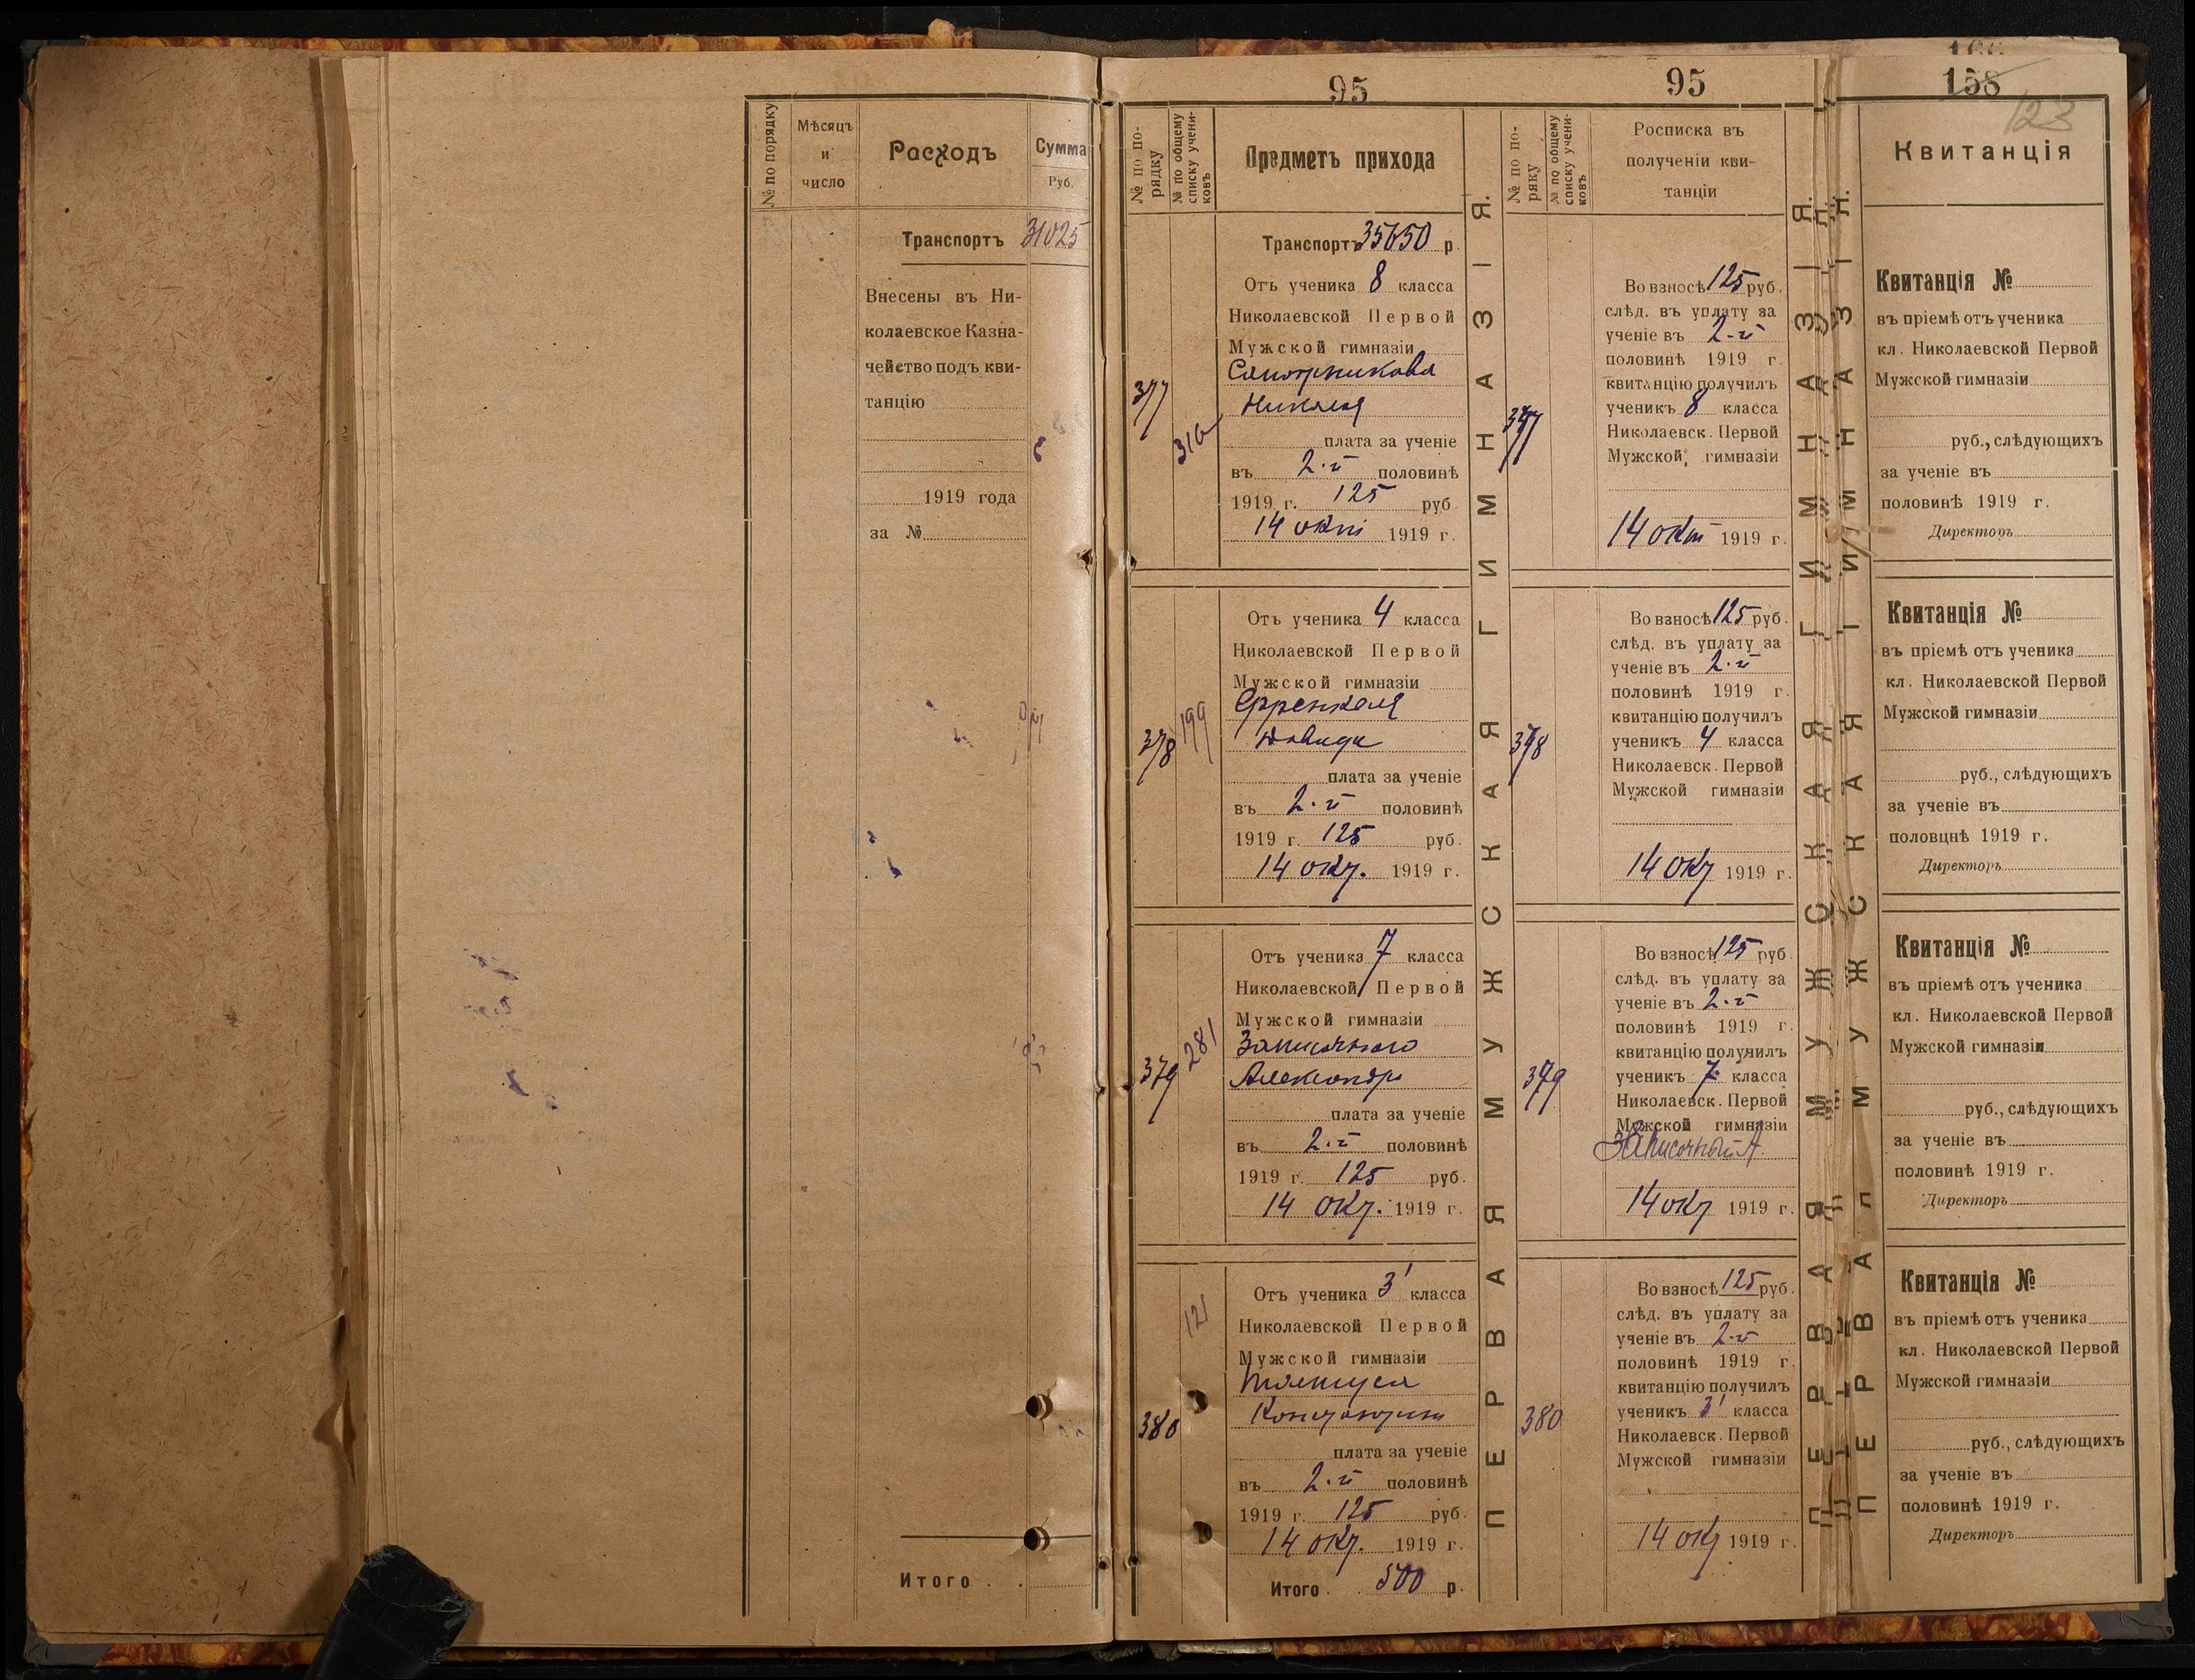 № по порядку
Мѣсяцъ
и
число
Расходъ
Сумма
Руб.
Транспортъ 31025
Внесены въ Ни-
колаевское Казна-
чейство подъ кви-
танцію
1919 года
за №
Итого . .
95
№ по по-
рядку
№ по общему
списку учени-
ковъ
Предметъ прихода
Транспортъ 35650 р.
377
316
Отъ ученика 8 класса
Николаевской Первой
Мужской гимназіи
Николая
плата за ученіе
въ 2-й половинѣ
1919 г. 125 руб.
14 окт 1919 г.
378
199
Отъ ученика 4 класса
Николаевской Первой
Мужской гимназіи
Френкеля
Давида
плата за ученіе
въ 2-й половинѣ
1919 г. 125 руб.
14 окт. 1919 г.
379
281
Отъ ученика 7 класса
Николаевской Первой
Мужской гимназіи
Записочного
Александр
плата за ученіе
въ 2-й половинѣ
1919 г. 125 руб.
14 окт. 1919 г.
380
121
Отъ ученика 3' класса
Николаевской Первой
Мужской гимназіи
Константин
плата за ученіе
въ 2-й половинѣ
1919 г. 125 руб.
14 окт. 1919 г.
Итого . . 500 р.
ПЕРВАЯ МУЖСКАЯ ГИМНАЗІЯ.
95
№ по по-
ряку
№ по общему
списку учени-
ковъ
Росписка въ
полученіи кви-
танціи
377
Во взносѣ 125 руб.
слѣд. въ уплату за
ученіе въ 2-й
половинѣ 1919 г.
квитанцію получилъ
ученикъ 8 класса
Николаевск. Первой
Мужской гимназіи
14 окт 1919 г.
378
Во взносѣ 125 руб.
слѣд. въ уплату за
ученіе въ 2-й
половинѣ 1919 г.
квитанцію получилъ
ученикъ 4 класса
Николаевск. Первой
Мужской гимназіи
14 окт 1919 г.
379
Во взносѣ 125 руб.
слѣд. въ уплату за
ученіе въ 2-й
половинѣ 1919 г.
квитанцію получилъ
ученикъ 7 класса
Николаевск. Первой
Мужской гимназіи
Записочный А.
14 окт 1919 г.
380
Во взносѣ 125 руб.
слѣд. въ уплату за
ученіе въ 2-й
половинѣ 1919 г.
квитанцію получилъ
ученикъ 3' класса
Николаевск. Первой
Мужской гимназіи
14 окт 1919 г.
ПЕРВАЯ МУЖСКАЯ ГИМНАЗІЯ.
158
123
Квитанція
Квитанція №
въ пріемѣ отъ ученика
кл. Николаевской Первой
Мужской гимназіи
руб., слѣдующихъ
за ученіе въ
половинѣ 1919 г.
Директоръ
Квитанція №
въ пріемѣ отъ ученика
кл. Николаевской Первой
Мужской гимназіи
руб., слѣдующихъ
за ученіе въ
половцнѣ 1919 г.
Директоръ
Квитанція №
въ пріемѣ отъ ученика
кл. Николаевской Первой
Мужской гимназіи
руб., слѣдующихъ
за ученіе въ
половинѣ 1919 г.
Директоръ
Квитанція №
въ пріемѣ отъ ученика
кл. Николаевской Первой
Мужской гимназіи
руб., слѣдующихъ
за ученіе въ
половинѣ 1919 г.
Директоръ